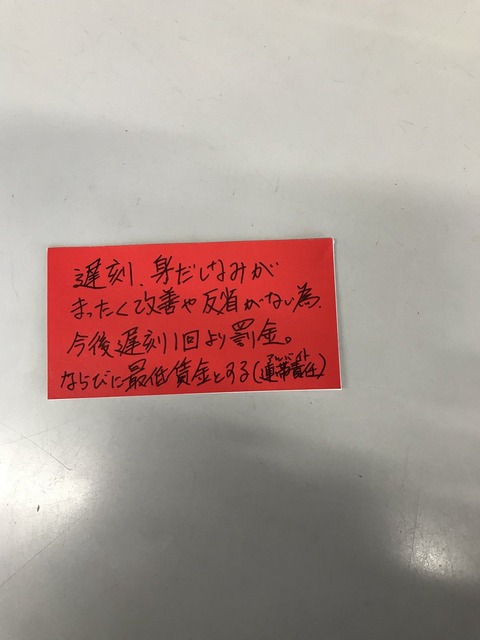 遅刻、身だしなみが
まったく改善や反省がない為、
今後遅刻1回より罰金。
ならびに最低賃金とする(連帯責任)